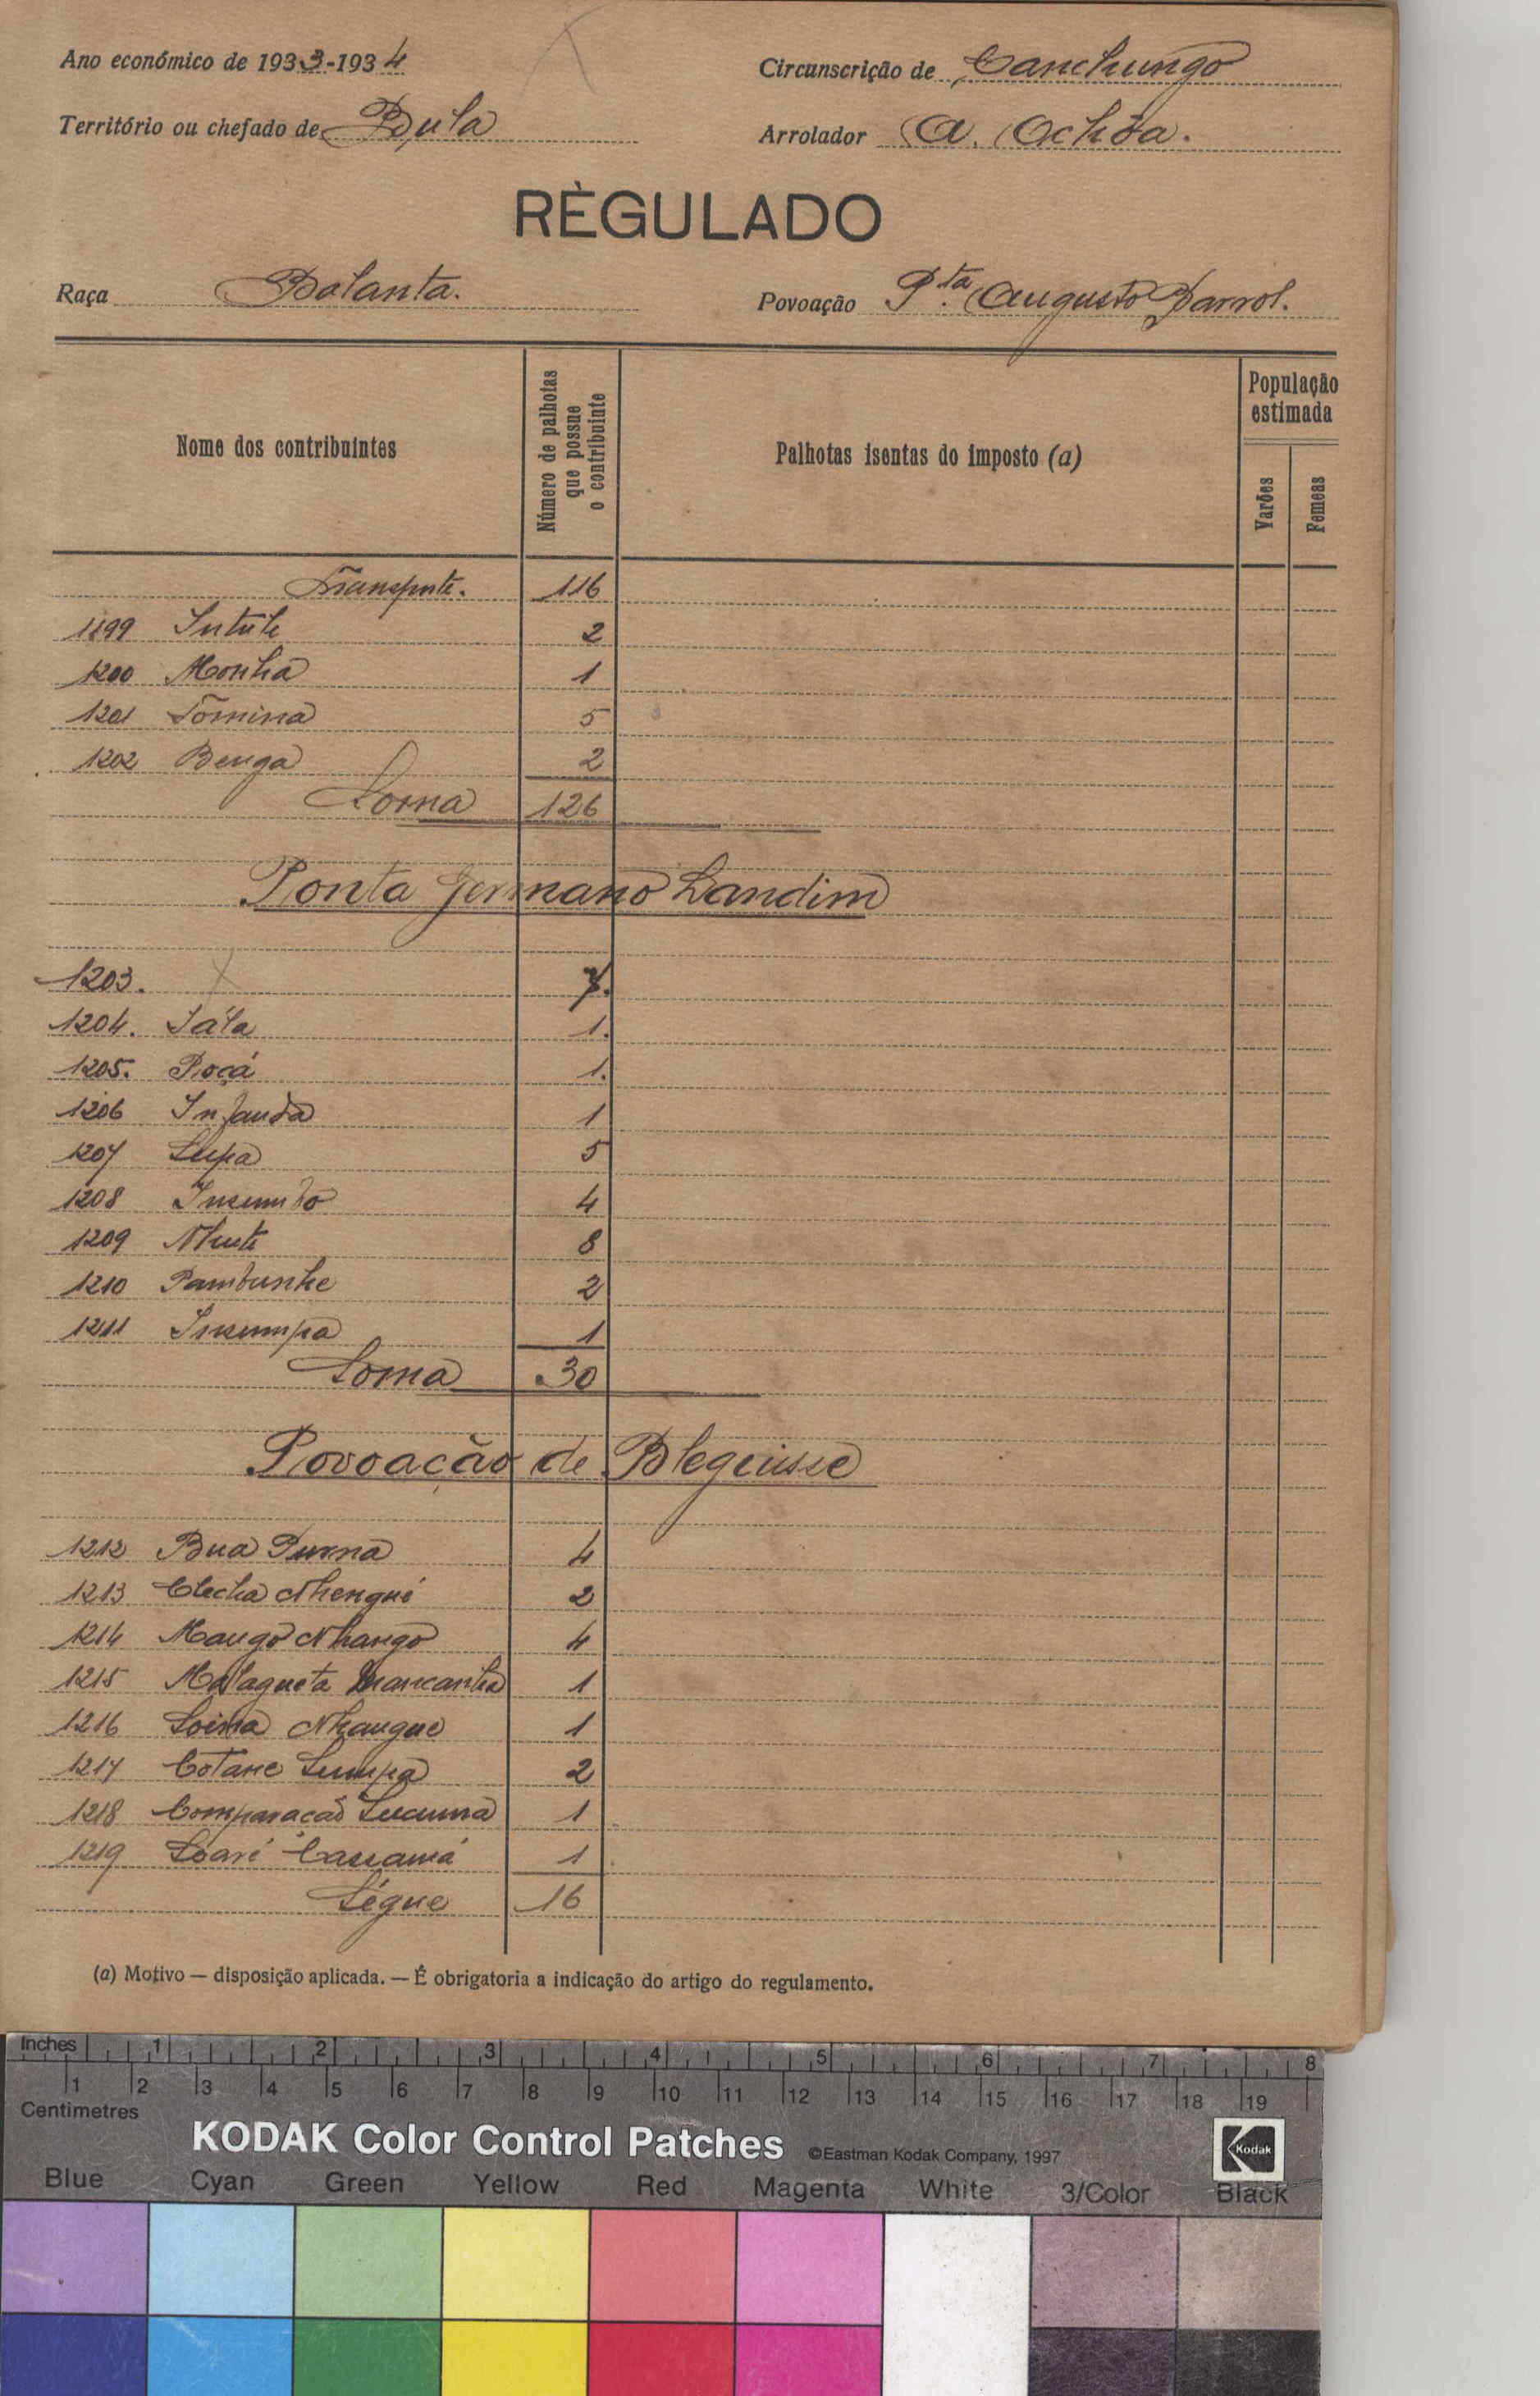 Ano económico de 1933-1934
Circunscrição de Canchungo
Território ou chefado de Bula
Arrolador A. Ochôa.
RÈGULADO
Raça Balanta.
Povoação P.ta Augusto Barrol.
Nome dos contribuintes
Número de palhotas que possue o contribuinte
Palhotas isentas do imposto (a)
População estimada
Varões
Femeas
Transporte. 116
1199 Intute 2
1200 Monha 1
1201 Tomina 5
1202 Benga 2
Soma 126
Ponta Germano Landim
1203. 7.
1204. Sála 1.
1205. Poçá 1.
1206 Infanda 1
1207 Lupa 5
1208 Insumbo 4
1209 Nhute 8
1210 Pambunhe 2
1211 Insumpa 1
Soma 30
Povoação de Blequisse
1212 Bua Purna 4
1213 Clecha Nhengué 2
1214 Mango Nhango 4
1215 Malagueta Mancanha 1
1216 Soima Nhangue 1
1217 Cotane Sumpa 2
1218 Comparacão Lucuma 1
1219 Soaré Cassamá 1
Ségue 16
(a) Motivo — disposição aplicada. — É obrigatoria a indicação do artigo do regulamento.
Inches 1 2 3 4 5 6 7 8
1 2 3 4 5 6 7 8 9 10 11 12 13 14 15 16 17 18 19
Centimetres
KODAK Color Control Patches ©Eastman Kodak Company, 1997 Kodak
Blue Cyan Green Yellow Red Magenta White 3/Color Black